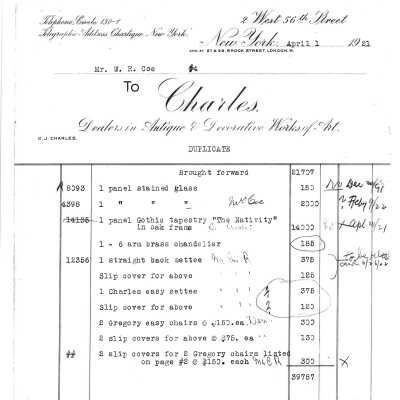 Telephone, Circle 130-1
Telegraphic Address Charlique, New York.
2 West 56th Street
New York. April 1 1921
AND AT 27 & 29, BROOK STREET, LONDON, W.
Mr. W. R. Coe #4
To Charles.
C.J. CHARLES.
Dealers in Antique & Decorative Works of Art.
DUPLICATE
Brought forward 21707
8093 1 panel stained glass 150 Dec
4398 1 " " " Mrs Coe 2000
14135 1 panel Gothic tapestry "The Nativity"
in oak frame 14000
1 - 6 arm brass chandelier 185
12356 1 straight back settee 375
Slip cover for above 125
1 Charles easy settee 375
Slip cover for above 120
2 Gregory easy chairs @ $150. ea 300
2 slip covers for above @ $75. ea 150
## 2 slip covers for 2 Gregory chairs listed
on page #2 @ $150. each 300 x
39787